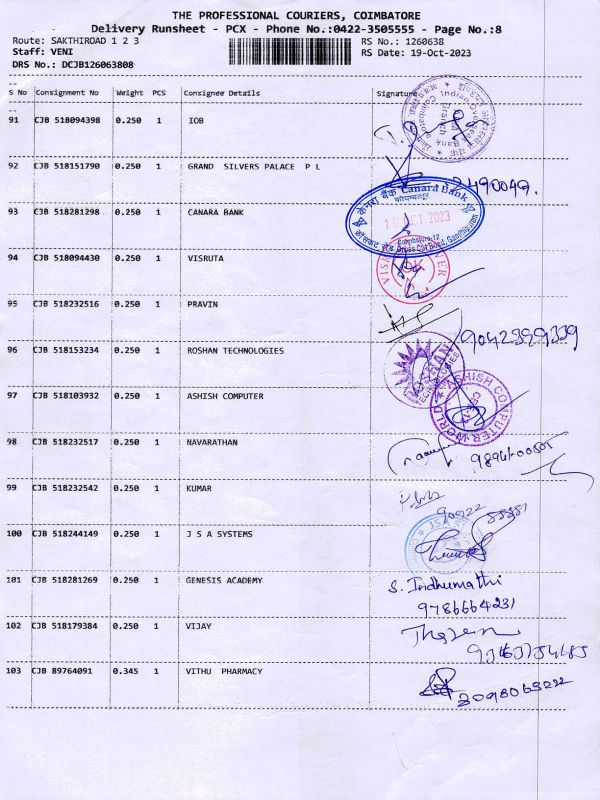 THE PROFESSIONAL COURIERS, COIMBATORE
Delivery Runsheet - PCX - Phone No.:0422-3505555 - Page No.:8
Route: SAKTHIROAD 1 2 3 RS No.: 1260638
Staff: VENI RS Date: 19-Oct-2023
DRS No.: DCJB126063808
S No Consignment No Weight PCS Consignee Details Signature
91 CJB 518094398 0.250 1 IOB
Indian Overseas Bank
Branch
92 CJB 518151790 0.250 1 GRAND SILVERS PALACE P L
2490049.
93 CJB 518281298 0.250 1 CANARA BANK
केनरा बैंक Canara Bank
OCT 2023
Coimbatore-12
Cross Cut Road, Gandhipuram
94 CJB 518094430 0.250 1 VISRUTA
95 CJB 518232516 0.250 1 PRAVIN
96 CJB 518153234 0.250 1 ROSHAN TECHNOLOGIES
97 CJB 518103932 0.250 1 ASHISH COMPUTER
ASHISH COMPUTER WORLD
98 CJB 518232517 0.250 1 NAVARATHAN
99 CJB 518232542 0.250 1 KUMAR
100 CJB 518244149 0.250 1 J S A SYSTEMS
101 CJB 518281269 0.250 1 GENESIS ACADEMY
S. Indhumathi
9786664231
102 CJB 518179384 0.250 1 VIJAY
103 CJB 89764091 0.345 1 VITHU PHARMACY